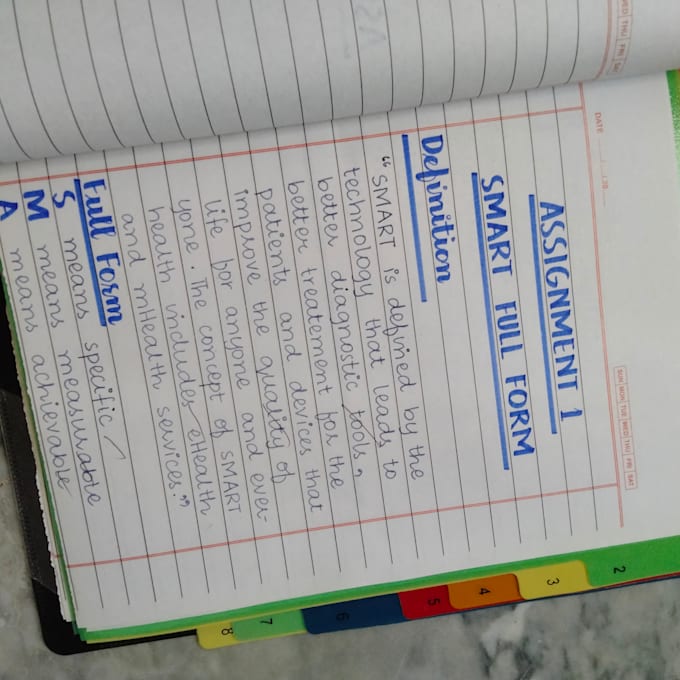 WED THU FRI SAT
DATE
SUN MON TUE WED THU FRI SAT
ASSIGNMENT 1
SMART FULL FORM
Definition
"SMART is defined by the
technology that leads to
better diagnostic tools,
better treatement for the
patients and devices that
improve the quality of
life for anyone and ever-
yone. The concept of SMART
health includes eHealth
and mHealth services."
Full Form
S means specific
M means measurable
A means achievable
2
3
4
5
6
7
8